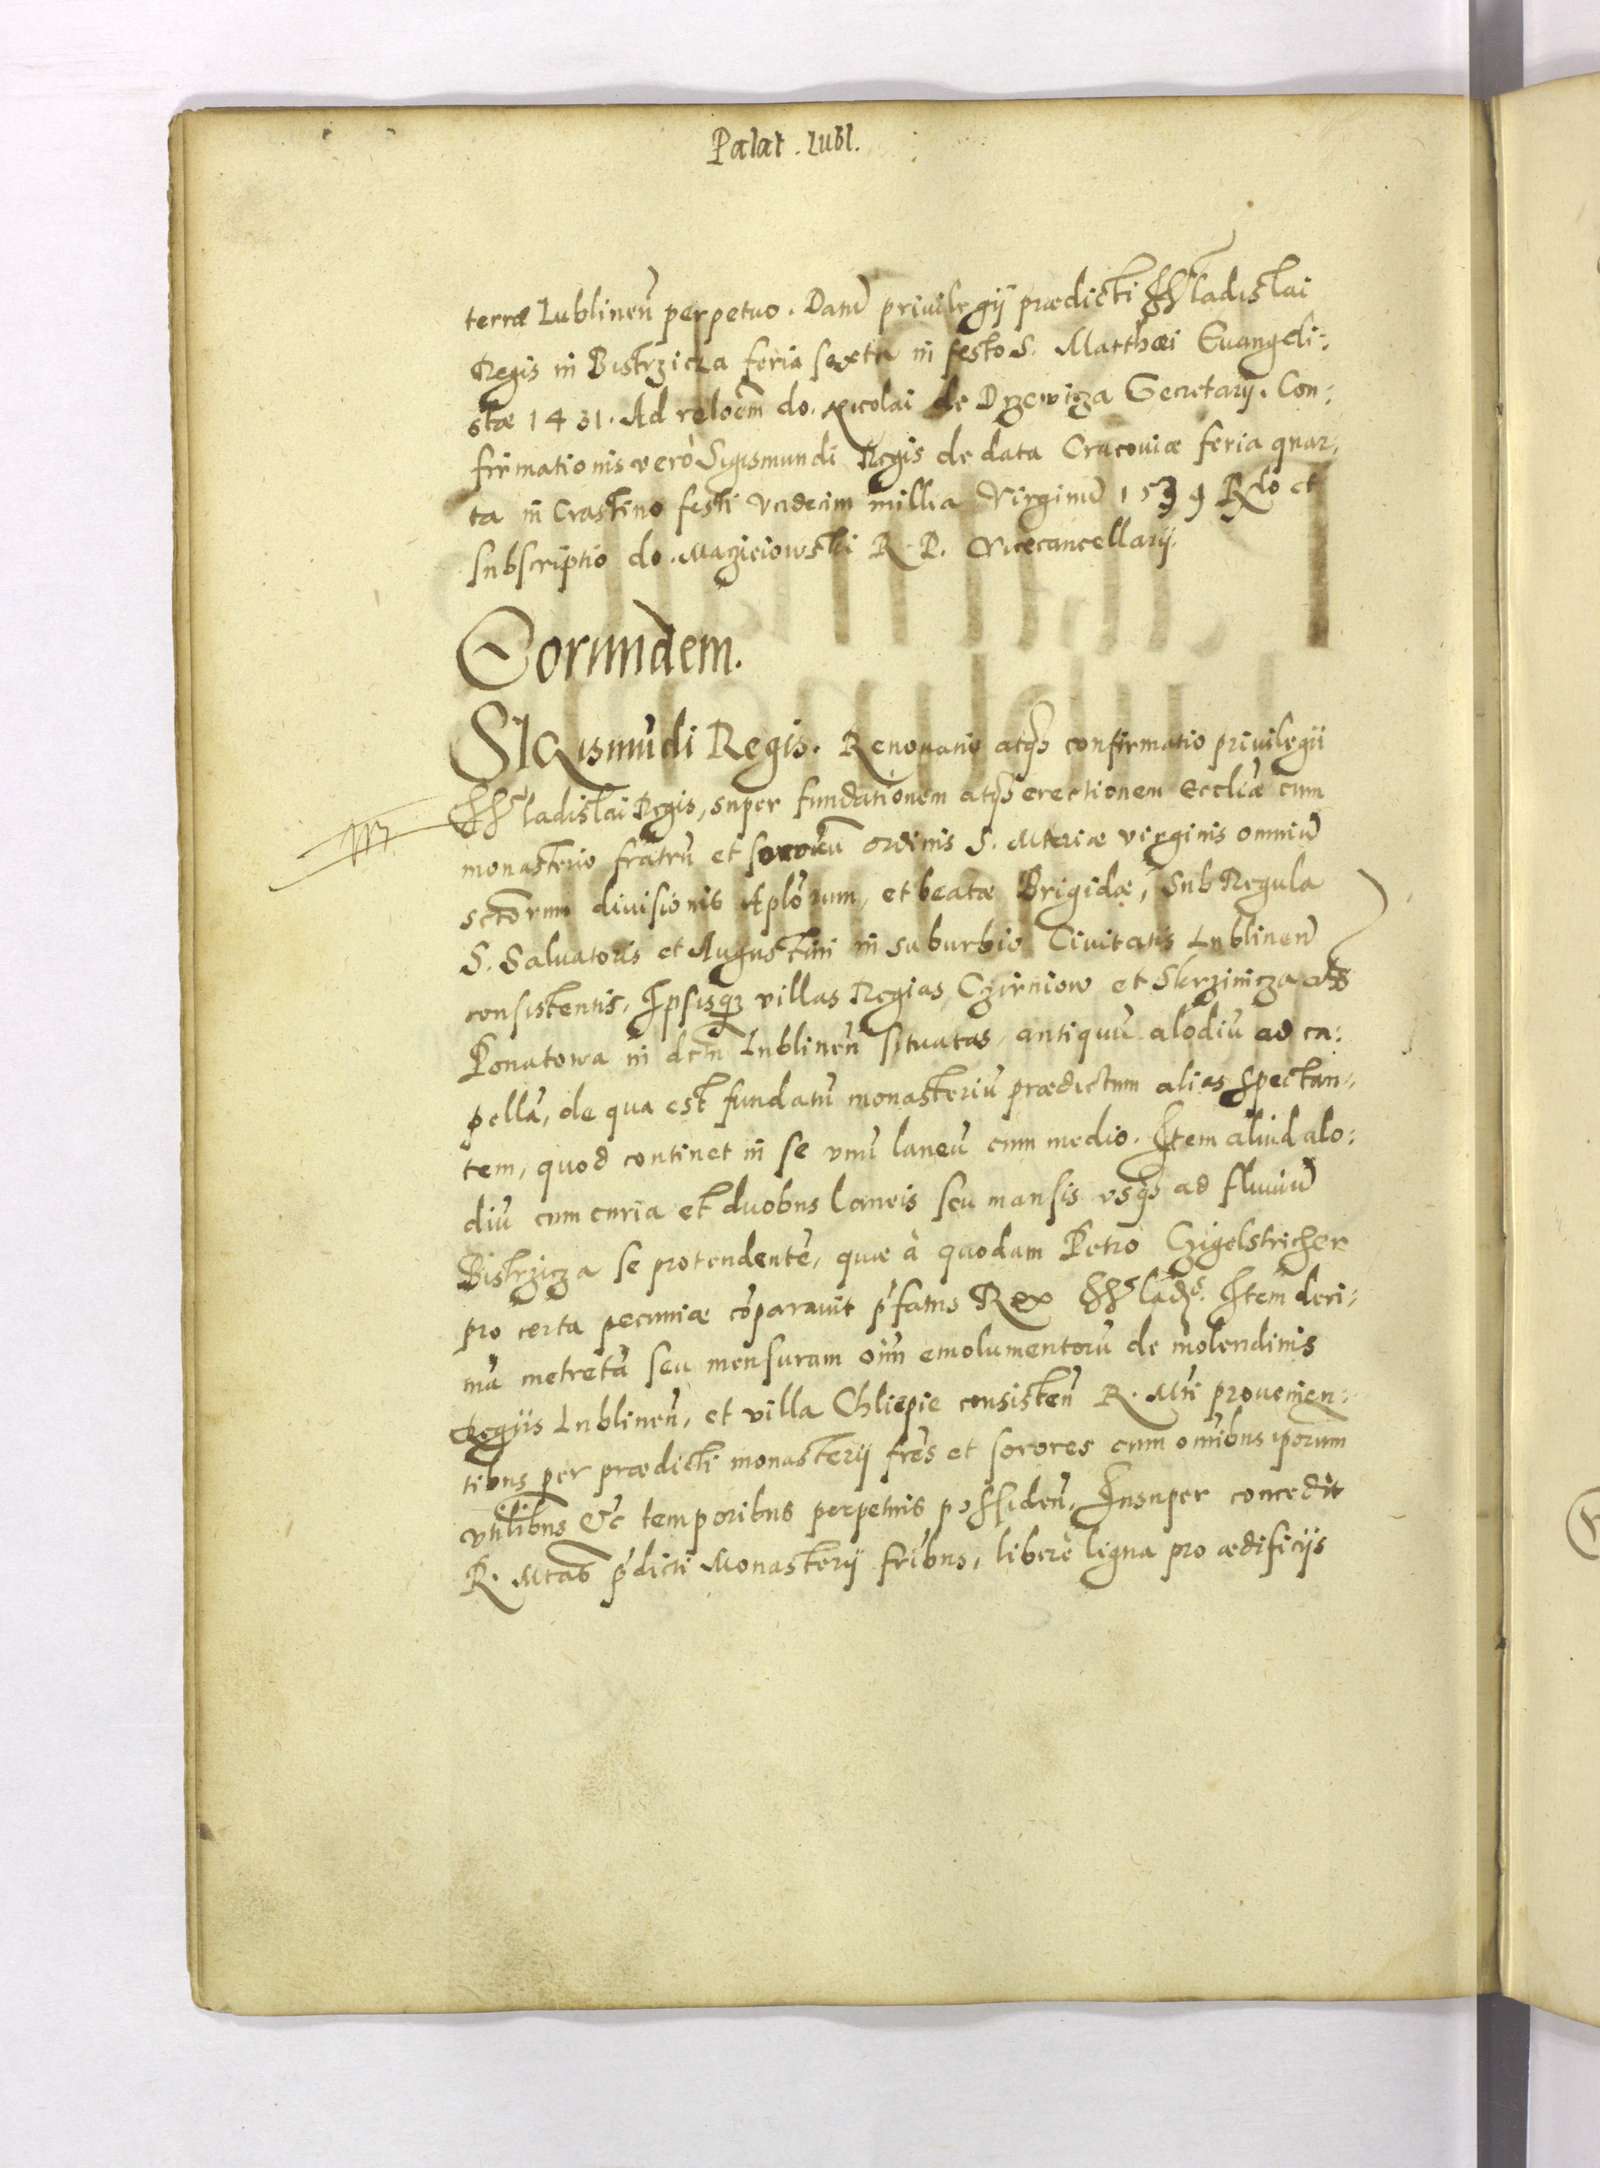 Palat. Lubl.
terræ Lublineñ perpetuo. Datũ privilegÿ prædicti Wladislai
Regis in Bistrzicza feria sexta in festo S. Matthæi Euangeli:
stæ 1431. Ad reloẽm do. Nicolai de Drzewicza Secretarÿ. Con:
firmationis verò Sigismundi Regis de data Cracoviæ feria quar,
ta in Crastino festi Vndecim millia Virginũ 1539 et
subscriptio do. Maczieiowski R. P. Vicecancellarÿ.
Eorundem.
SIGismũdi Regis. Renouatio atqȝ confirmatio privilegii
Wladislai Regis, super fundationem atqȝ erectionem Eccliæ cum
monasterio fratrũ et sororũ ordinis S. Mariæ virginis omniũ
sctorum divisionis Aplorum, et beatæ Brigidæ, Sub Regula
S. Saluatoris et Augustini in suburbio Civitatis Lublineñ
consistentis, Ipsisqȝ villas Regias, Czirniow et Skrzinicza
Ponatowa in Lublineñ situatas, antiquũ alodiũ ad ca:
pellã, de qua est fundatũ monasteriũ prædictum alias spectan,
tem, quod continet in se vnũ laneũ cum medio. Item aliud alo:
diũ cum curia et duobus laneis seu mansis vsqȝ ad fluuiũ
Bistrzicza se protendentẽ, quæ à quodam Petro Czigelstricher
pro certa pecuniæ cõparauit p̃fatus Rex Wlad. Item deci,
mã metretã seu mensuram oĩm emolumentorũ de molendinis
Regiis Lublineñ, et villa Chliepie consisteñ R. Mti provenien:
tibus per prædicti monasterÿ fr̃es et sorores cum omĩbus ipsorum
vtilibus &c temporibus perpetuis possideñ, Insuper concedit
R. Mtas p̃dicti Monasterÿ fr̃ibus, liberè ligna pro ædificÿs